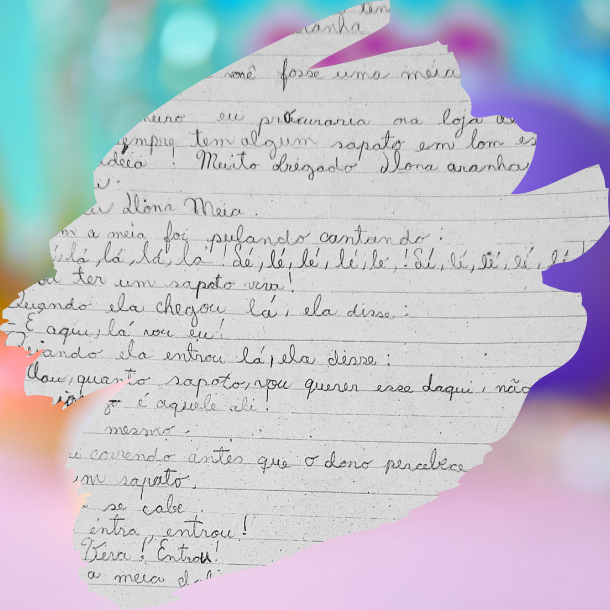 tem
aranha
você fosse uma meia
eu procuraria na loja
empre tem algum sapato em bom es
ideia! Muito obrigado dona aranha
u.
dona Meia.
m a meia foi pulando cantando:
lá, lá, lá, la! Lé, lé, lé, lé, le! Lí, lí, lí, lí, lí
ter um sapato vira!
Quando ela chegou lá, ela disse:
- É aqui, lá vou eu!
Quando ela entrou lá, ela disse:
Uau, quanto sapato, vou querer esse daqui, não
é aquele ali.
mesmo.
correndo antes que o dono percebece
um sapato,
se cabe.
entra, entrou!
Entrou!
a meia